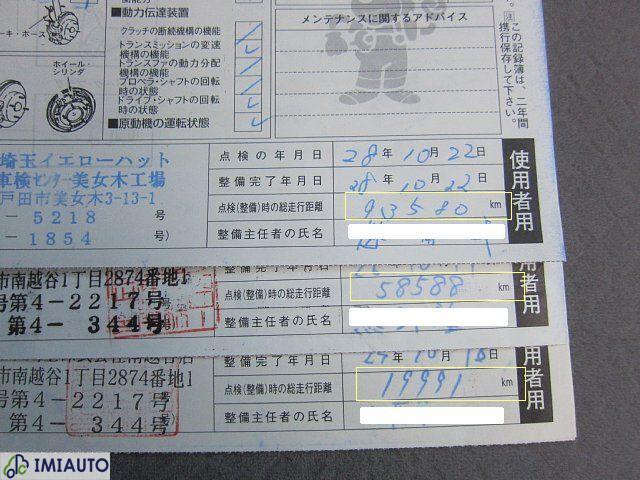 ーキ・ホース
ホイール・
シリンダ
■動力伝達装置
クラッチの断続機構の機能
トランスミッションの変速
機構の機能
トランスファの動力分配
機構の機能
プロペラ・シャフトの回転
時の状態
ドライブ・シャフトの回転
時の状態
■原動機の運転状態
メンテナンスに関するアドバイス
この記録簿は、二年間
携行保存して下さい。
埼玉イエローハット
車検センター美女木工場
戸田市美女木3-13-1
-5218 号
-1854 号)
点検の年月日 28年10月22日
整備完了年月日 28年10月22日
点検(整備)時の総走行距離 93580 km
整備主任者の氏名
使用者用
市南越谷1丁目2874番地1
号第4-2217号
第4-344号
点検(整備)時の総走行距離 58588 km
整備主任者の氏名
者用
市南越谷1丁目2874番地1
号第4-2217号
第4-344号)
整備完了年月日 24年10月18日
点検(整備)時の総走行距離 19991 km
整備主任者の氏名
用者用
IMIAUTO